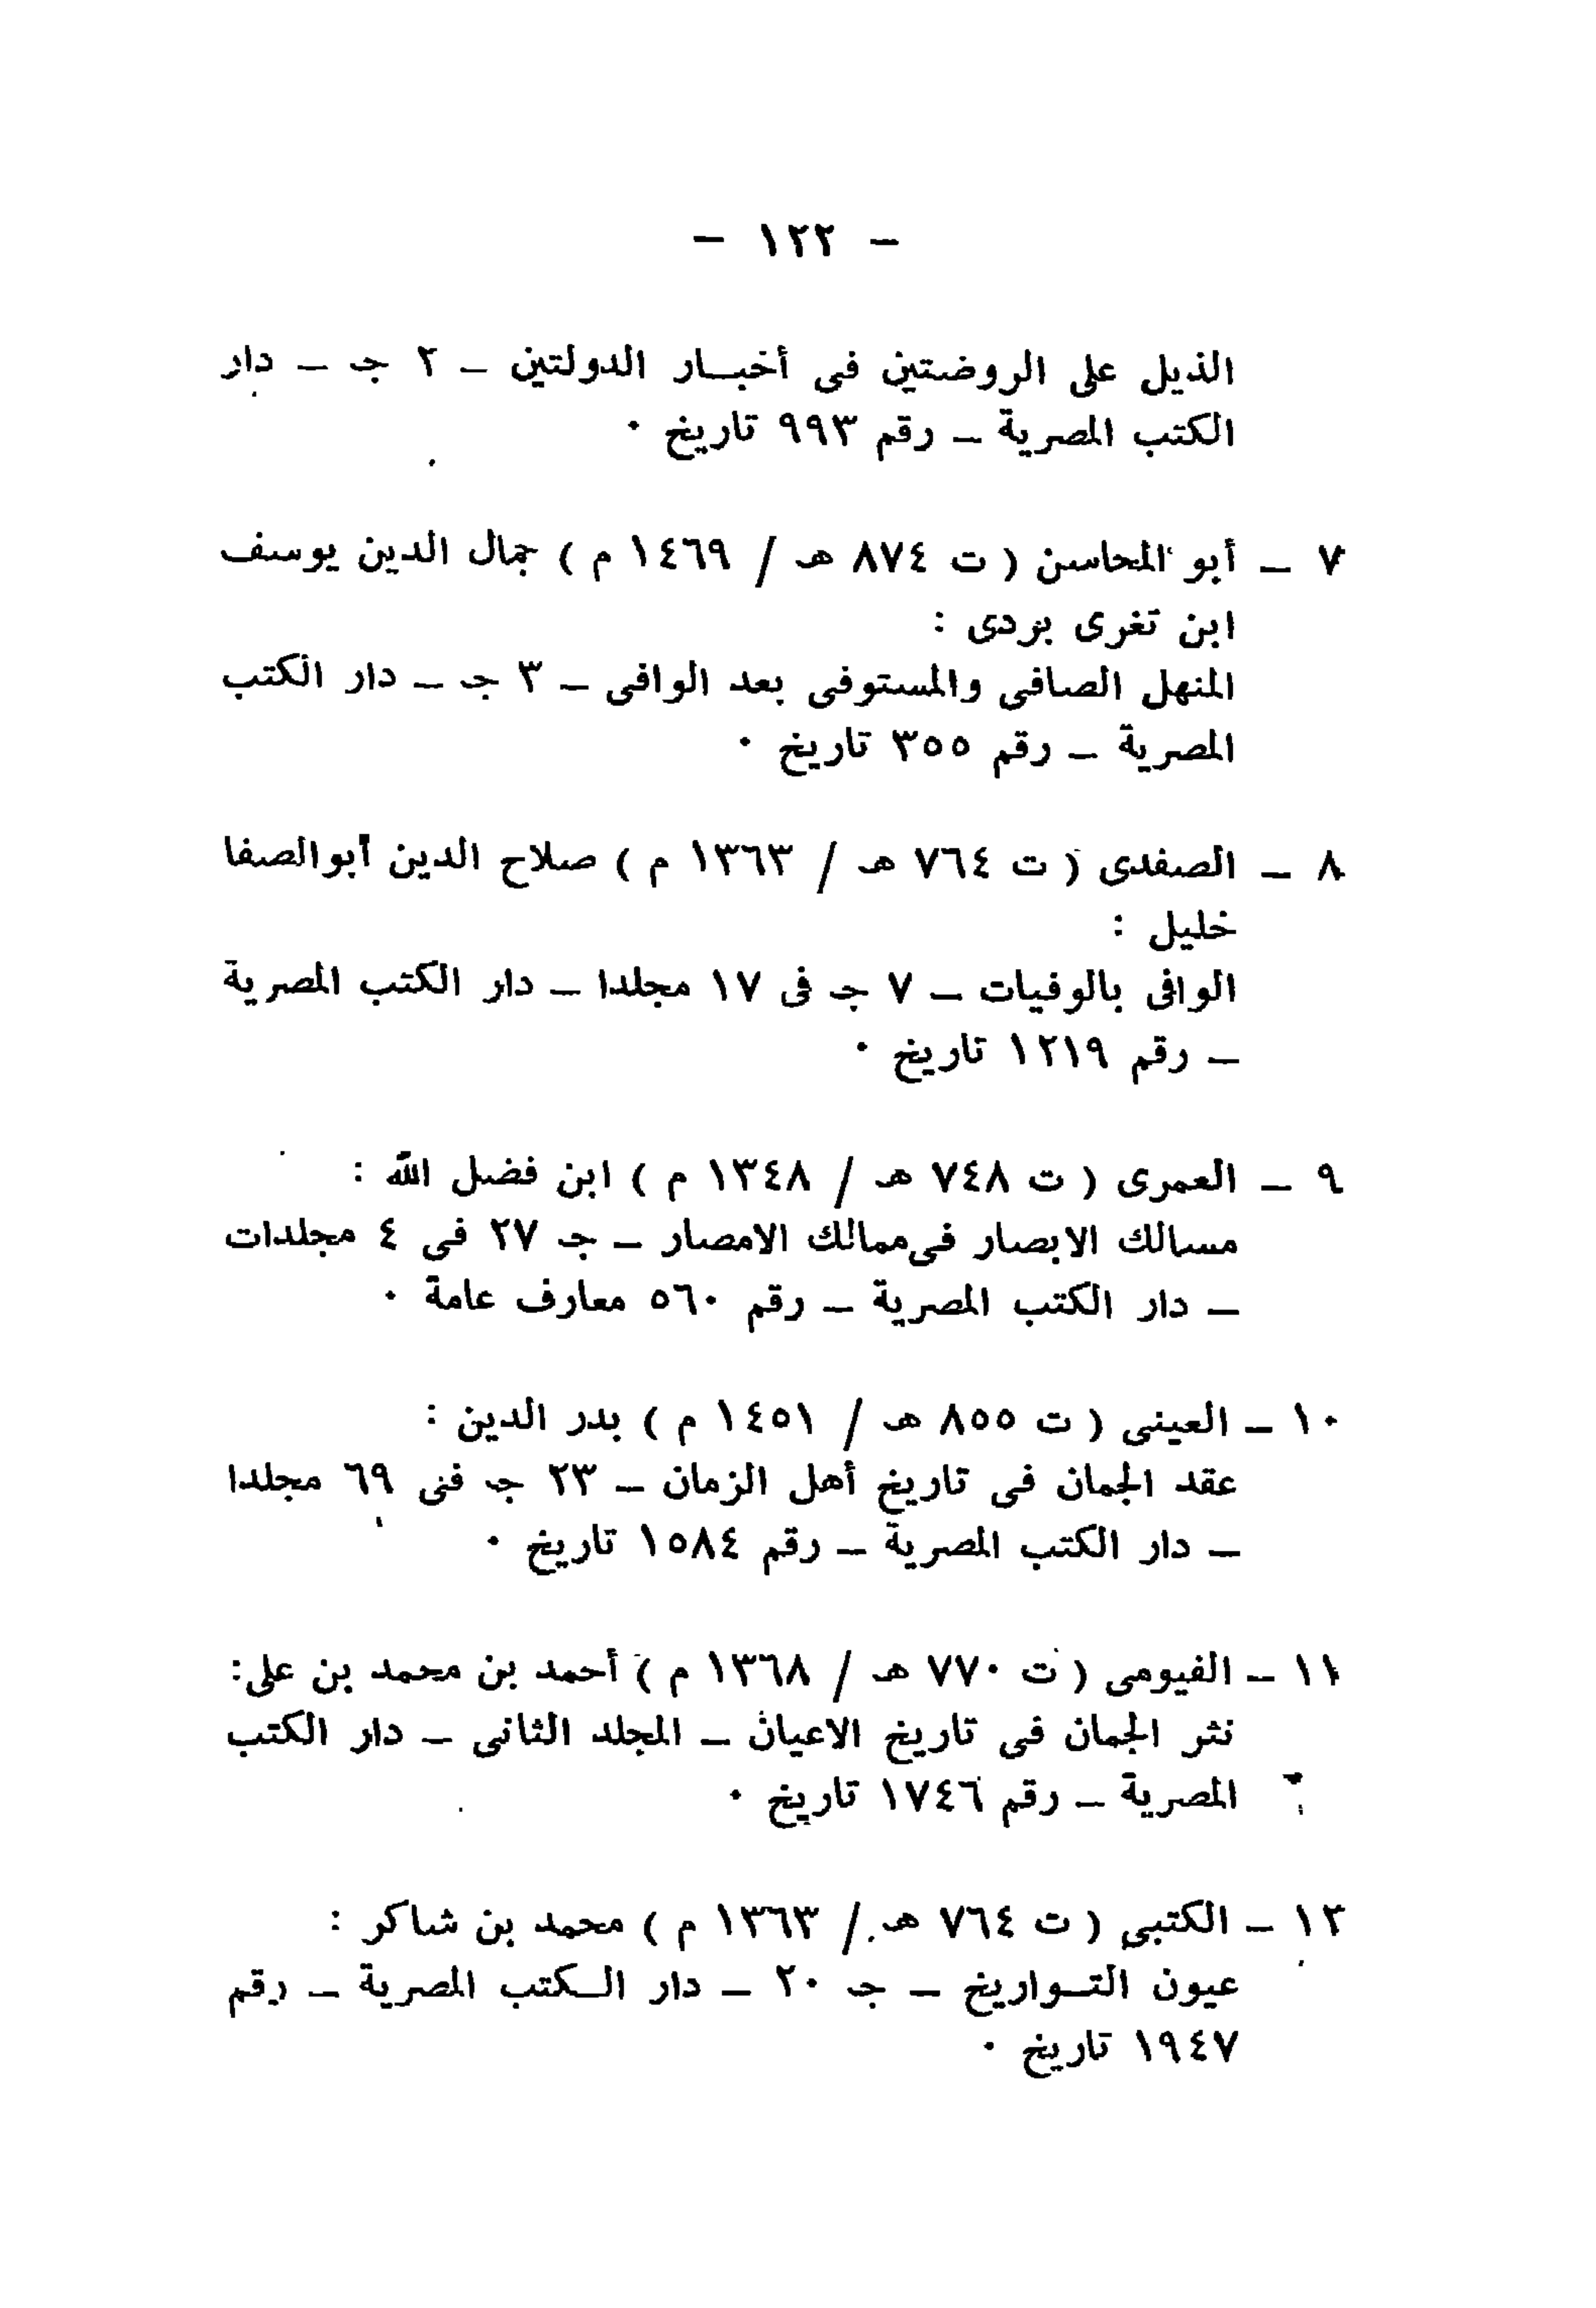 – ١٢٢ –
الذيل على الروضتين فى أخبـار الدولتين – ٢ جـ – دار
الكتب المصرية – رقم ٩٩٣ تاريخ ٠
٧ – أبو المحاسن ( ت ٨٧٤ هـ / ١٤٦٩ م ) جمال الدين يوسف
ابن تغرى بردى :
المنهل الصافى والمستوفى بعد الوافى – ٣ جـ – دار الكتب
المصرية – رقم ٣٥٥ تاريخ ٠
٨ – الصفدى ( ت ٧٦٤ هـ / ١٣٦٣ م ) صلاح الدين أبوالصفا
خليل :
الوافى بالوفيات – ٧ جـ فى ١٧ مجلدا – دار الكتب المصرية
– رقم ١٢١٩ تاريخ ٠
٩ – العمرى ( ت ٧٤٨ هـ / ١٣٤٨ م ) ابن فضل الله :
مسالك الابصار فى ممالك الامصار – جـ ٢٧ فى ٤ مجلدات
– دار الكتب المصرية – رقم ٥٦٠ معارف عامة ٠
١٠ – العينى ( ت ٨٥٥ هـ / ١٤٥١ م ) بدر الدين :
عقد الجمان فى تاريخ أهل الزمان – ٢٣ جـ فى ٦٩ مجلدا
– دار الكتب المصرية – رقم ١٥٨٤ تاريخ ٠
١١ – الفيومى ( ت ٧٧٠ هـ / ١٣٦٨ م ) أحمد بن محمد بن على:
نثر الجمان فى تاريخ الاعيان – المجلد الثانى – دار الكتب
المصرية – رقم ١٧٤٦ تاريخ ٠
١٢ – الكتبى ( ت ٧٦٤ هـ / ١٣٦٣ م ) محمد بن شاكر :
عيون التـواريخ – جـ ٢٠ – دار الـكتب المصرية – رقم
١٩٤٧ تاريخ ٠